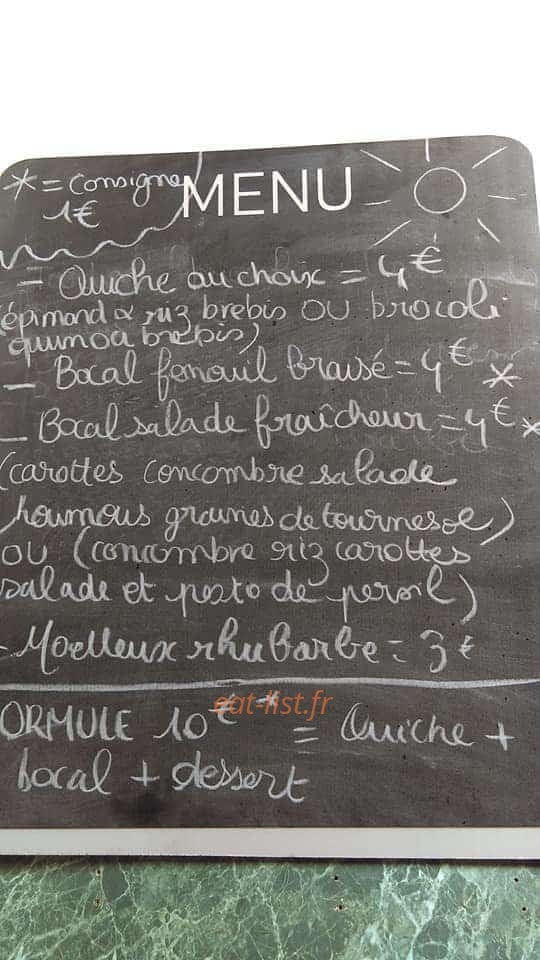 * = Consigne
1€
MENU
- Quiche au choix = 4€
(épimond & riz brebis OU brocoli
quimoa brebis)
- Bocal fenouil braisé = 4€ *
- Bocal salade fraîcheur = 4€ *
(carottes concombre salade
houmous graines de tournesol)
OU (concombre riz carottes
salade et pesto de persil)
- Moelleux rhubarbe = 3€
ORMULE 10€* = Quiche +
bocal + dessert
eat-list.fr